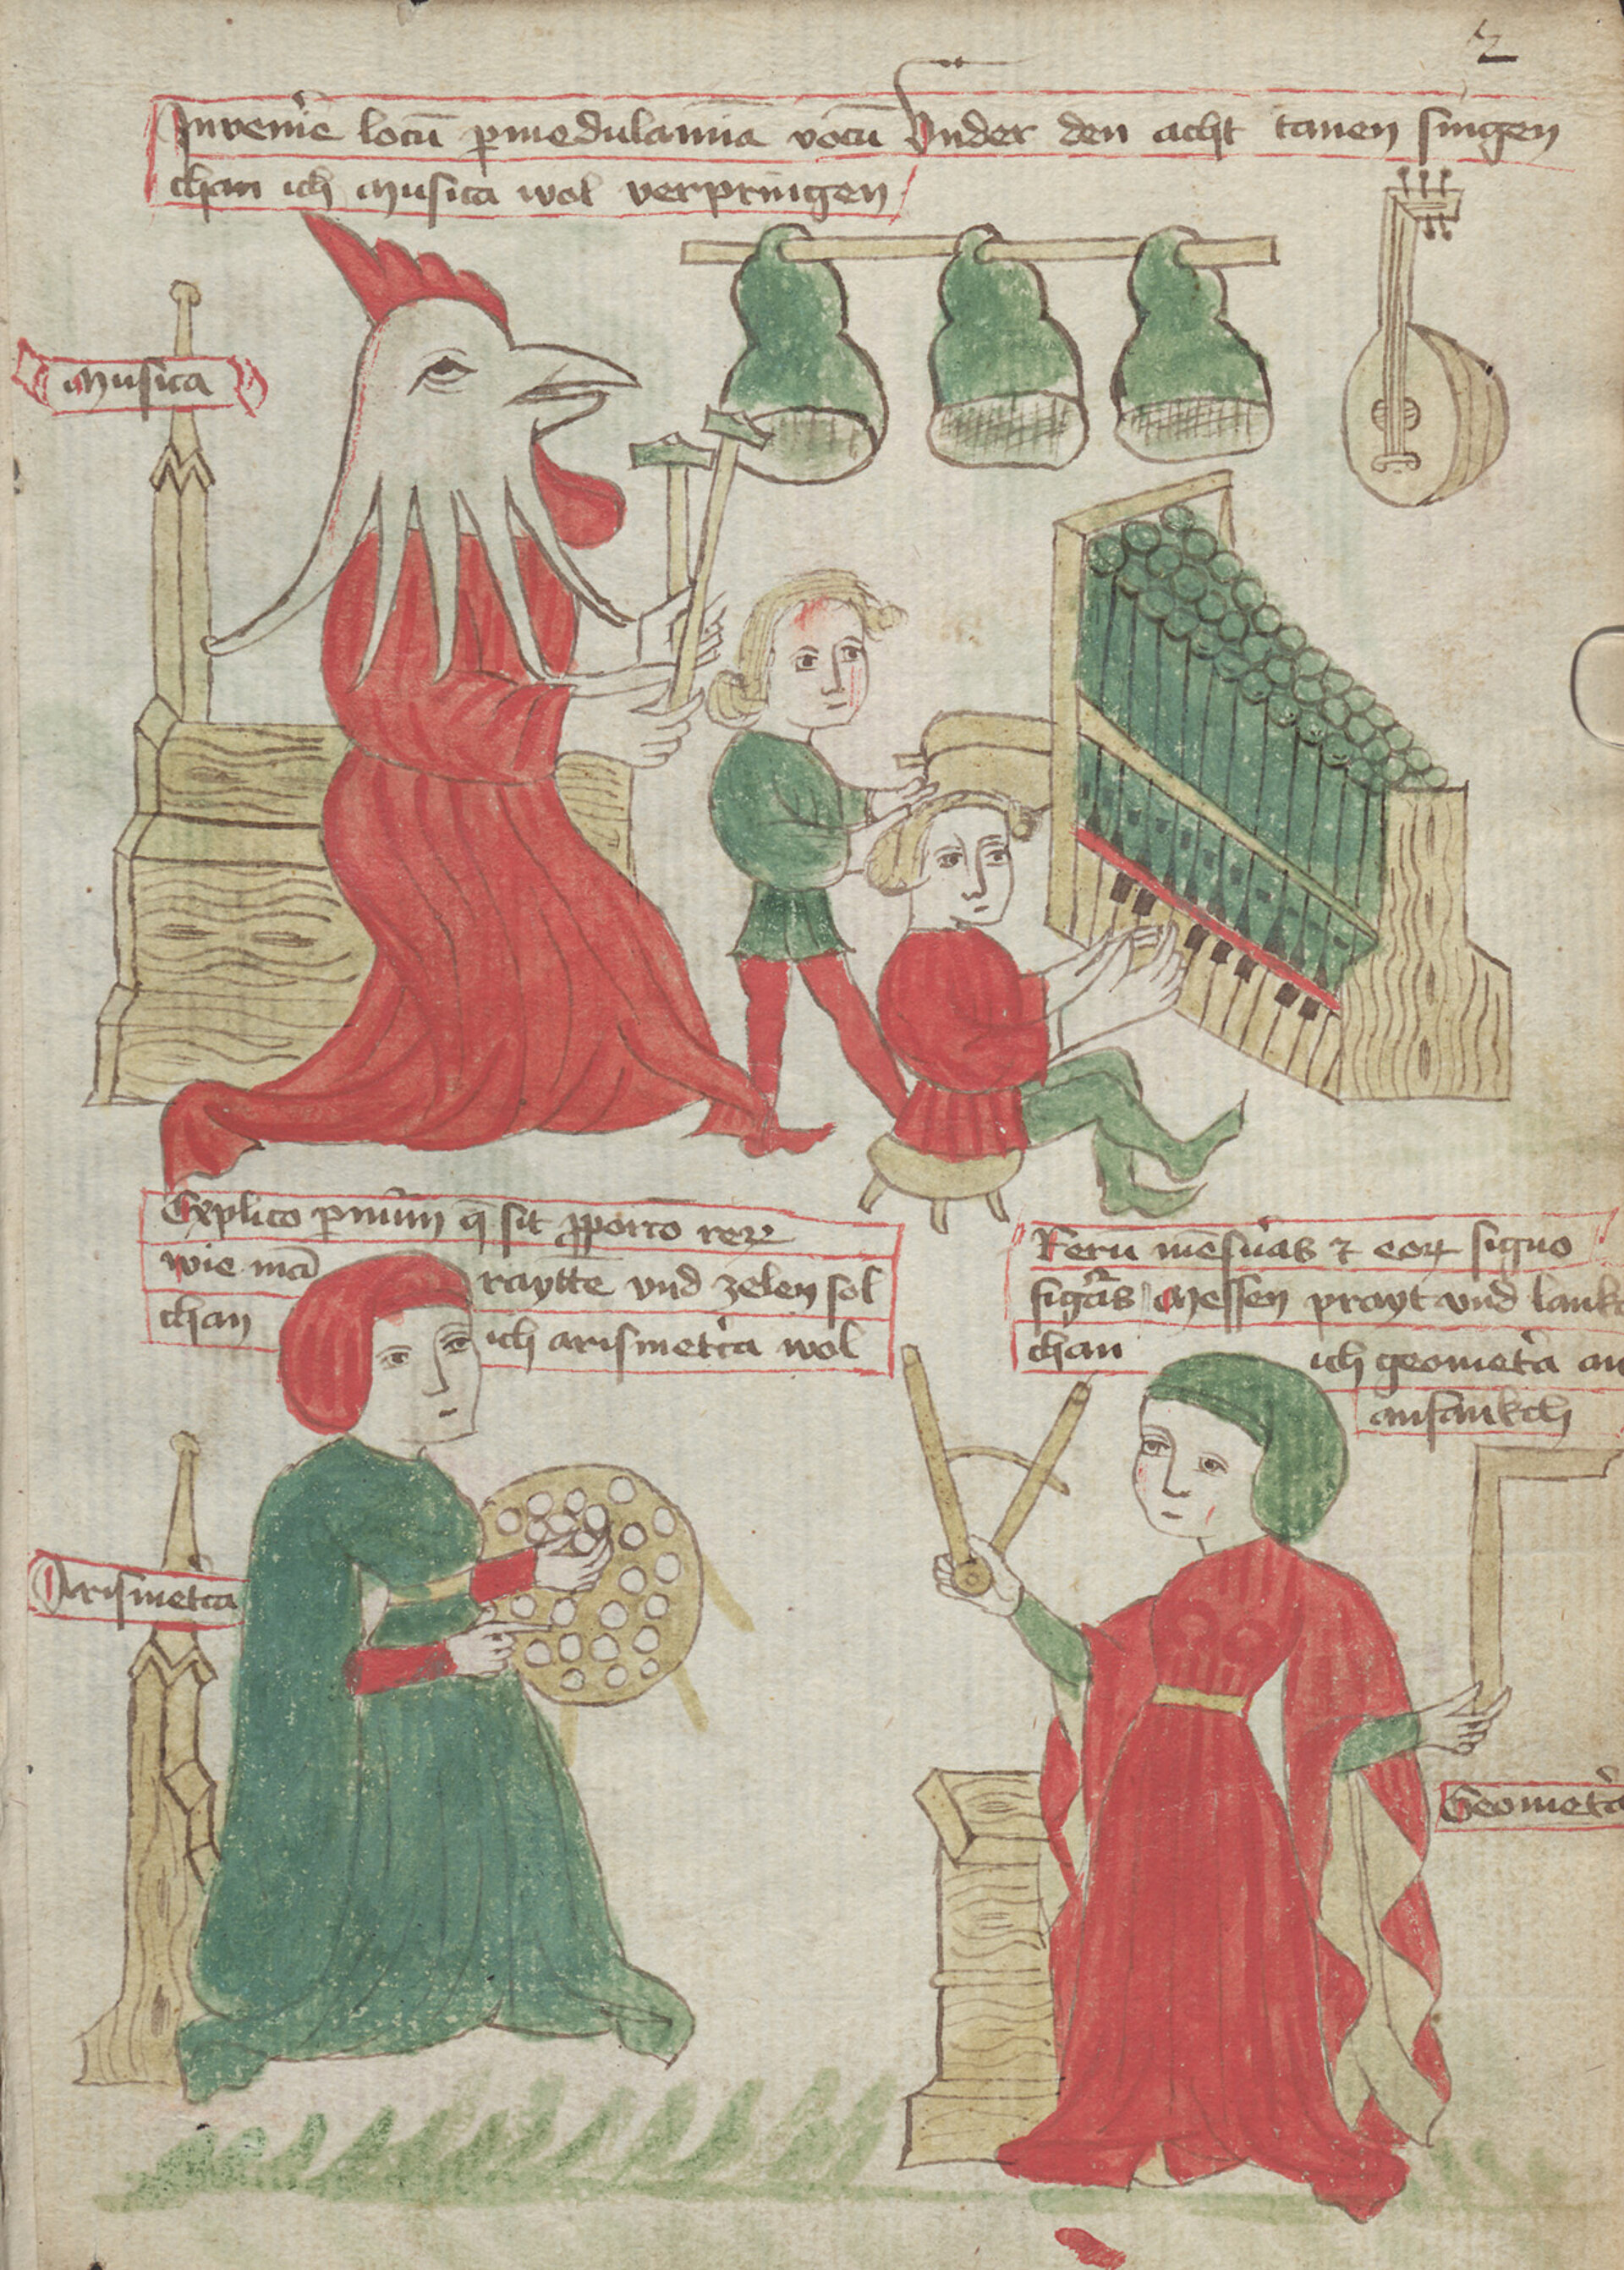 2
Invenie locū ꝑmedulamina vocū Vnder den acht tonen singen
chan ich Musica wol verpringen
Musica
Explico ꝑ nūm q̄ sit ꝓporcō reꝝ
wie mā raytte vnd zelen sol
chan ich arismetica wol
Rerū mēsuras ⁊ eoꝝ signo
figuras Messen prayt vnd lank
chan ich geometa an
anfankch
Arismetca
Geometa